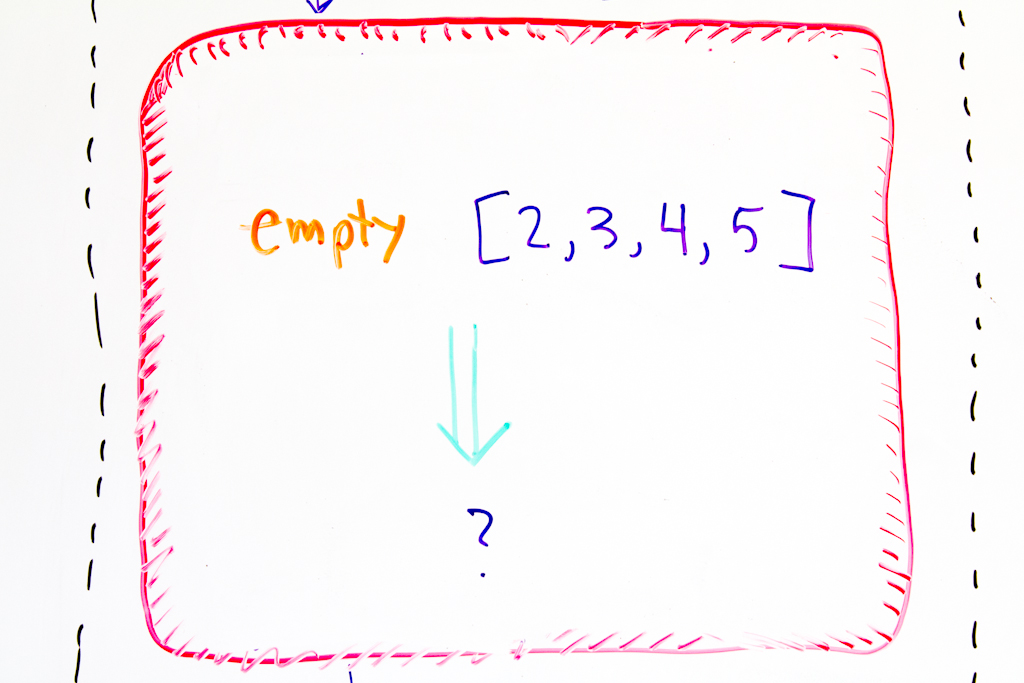 empty [2,3,4,5]
?